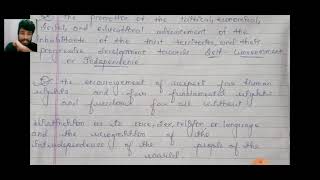 the promotion of the political, economical,
social, and educational advancement of the
inhabitants of the trust territories and their
progressive development towards Self Government
or Independence
the encouragement of respect for human
rights and for fundamental rights
and freedoms for all without
distinction as to race, sex, religion or language
and the recognition of the
interdependence of the people of the
world